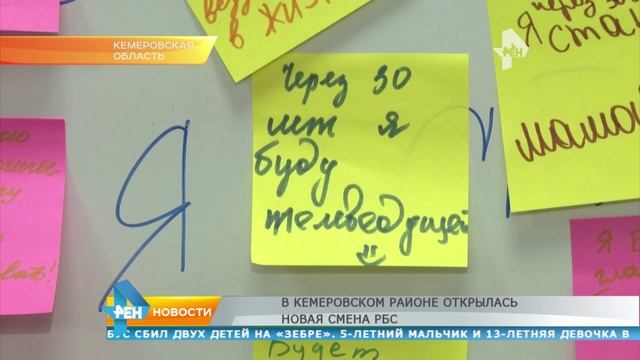 КЕМЕРОВСКАЯ
ОБЛАСТЬ
в жиз
РЕН
через
я
ста
мамой
Через 30
лет я
буду
телеведущей
Я
Я
будет
РЕН НОВОСТИ
В КЕМЕРОВСКОМ РАЙОНЕ ОТКРЫЛАСЬ
НОВАЯ СМЕНА РБС
БУС СБИЛ ДВУХ ДЕТЕЙ НА «ЗЕБРЕ». 5-ЛЕТНИЙ МАЛЬЧИК И 13-ЛЕТНЯЯ ДЕВОЧКА В